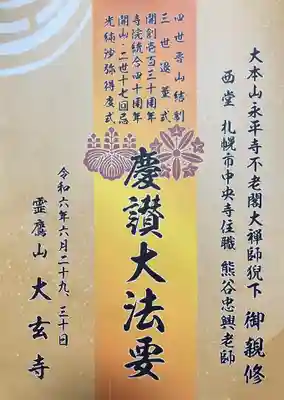 大本山永平寺不老閣大禅師猊下 御親修
西堂 札幌市中央寺住職 熊谷忠興老師
四世晋山結制
三世退董式
開創壱百三十周年
寺院統合四十周年
開山・二世十七回忌
光純沙弥得度式
慶讃大法要
令和六年六月二十九、三十日
靈鷹山 大玄寺